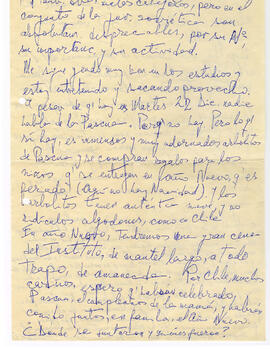 conjunto de la juv. soviética son
absolutam. despreciables, por su Nº,
su importanc. y su actividad.
Me sigue yendo muy bien en los estudios y
estoy entendiendo y sacando provecho.
A pesar de q' hoy es Martes 22 Dic. nadie
habla de la Pascua. Porq' no hay. Pero lo q'
sí hay, es inmensos y muy adornados arbolitos
de Pascua, y se compran regalos para los
niños y se entregan en Año Nuevo, q' es
feriado (Aquí no hay Navidad) y los
arbolitos tienen auténtica nieve, y no
ridículos algodones, como en Chile.
En año Nuevo, tendremos una gran cena
del Instituto, de mantel largo, a todo
trapo, de amanecida. Por Chile, muchos
cariños, espero q' hayan celebrado,
Pascua, el cumpleaños de la mamá, y habrán
comido juntos, en familia, el Año Nuevo.
¿Donde se juntaron y quienes fueron?